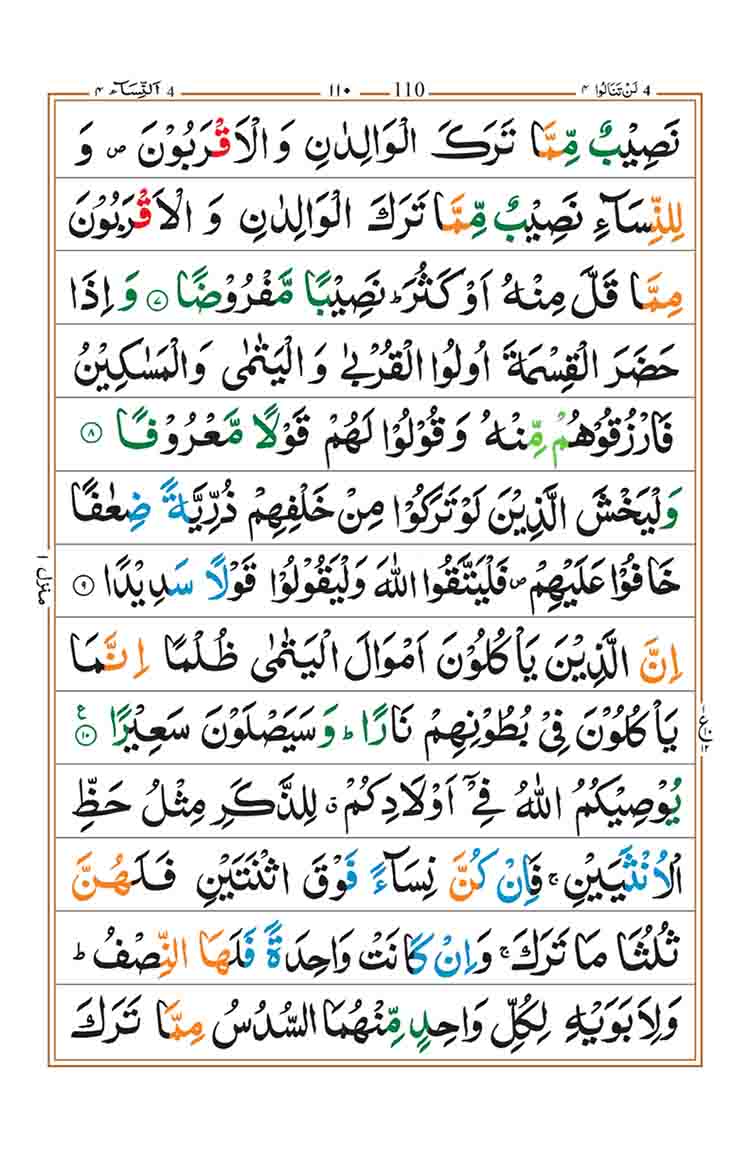 4 لَنْ تَنَالُوا ۴ 110 ۱۱۰ 4 اَلنِّسَآء ۴
نَصِيْبٌ مِّمَّا تَرَكَ الْوَالِدٰنِ وَ الْاَقْرَبُوْنَ ۪ وَ
لِلنِّسَآءِ نَصِيْبٌ مِّمَّا تَرَكَ الْوَالِدٰنِ وَ الْاَقْرَبُوْنَ
مِمَّا قَلَّ مِنْهُ اَوْ كَثُرَ ؕ نَصِيْبًا مَّفْرُوْضًا ۷ وَ اِذَا
حَضَرَ الْقِسْمَةَ اُولُوا الْقُرْبٰى وَ الْيَتٰمٰى وَ الْمَسٰكِيْنُ
فَارْزُقُوْهُمْ مِّنْهُ وَ قُوْلُوْا لَهُمْ قَوْلًا مَّعْرُوْفًا ۸
وَ لْيَخْشَ الَّذِيْنَ لَوْ تَرَكُوْا مِنْ خَلْفِهِمْ ذُرِّيَّةً ضِعٰفًا
خَافُوْا عَلَيْهِمْ ۪ فَلْيَتَّقُوا اللّٰهَ وَ لْيَقُوْلُوْا قَوْلًا سَدِيْدًا ۹
اِنَّ الَّذِيْنَ يَاْكُلُوْنَ اَمْوَالَ الْيَتٰمٰى ظُلْمًا اِنَّمَا
يَاْكُلُوْنَ فِيْ بُطُوْنِهِمْ نَارًا ؕ وَ سَيَصْلَوْنَ سَعِيْرًا ۱۰ ع
يُوْصِيْكُمُ اللّٰهُ فِيْۤ اَوْلَادِكُمْ ۗ لِلذَّكَرِ مِثْلُ حَظِّ
الْاُنْثَيَيْنِ ۚ فَاِنْ كُنَّ نِسَآءً فَوْقَ اثْنَتَيْنِ فَلَهُنَّ
ثُلُثَا مَا تَرَكَ ۚ وَ اِنْ كَانَتْ وَاحِدَةً فَلَهَا النِّصْفُ ؕ
وَ لِاَبَوَيْهِ لِكُلِّ وَاحِدٍ مِّنْهُمَا السُّدُسُ مِمَّا تَرَكَ
منزل ۱